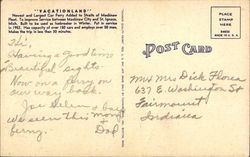 "VACATIONLAND"
Newest and Largest Car Ferry Added to Straits of Mackinac
Fleet. To improve Service between Mackinaw City and St. Ignace,
Mich. Built to be used as Icebreaker in Winter. Put in service
in 1952. Has capacity of over 150 cars and employs over 50 men.
Makes the trip in less than 30 minutes.
POST CARD
Hi,
Having a good time
Beautiful sights
Now on a ferry on
our way back.
Joe Helen & boys
We seen this mom
ferry. + Dad
Mr & Mrs Dick Florea
637 E. Washington St
Fairmount
Indiana